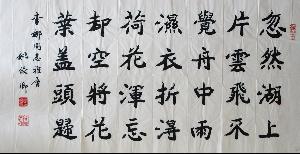 忽然湖上
片雲飛不
覺舟中雨
濕衣折得
荷花渾忘
却空將花
葉蓋頭歸
香娜同志雅賞
姚俊卿